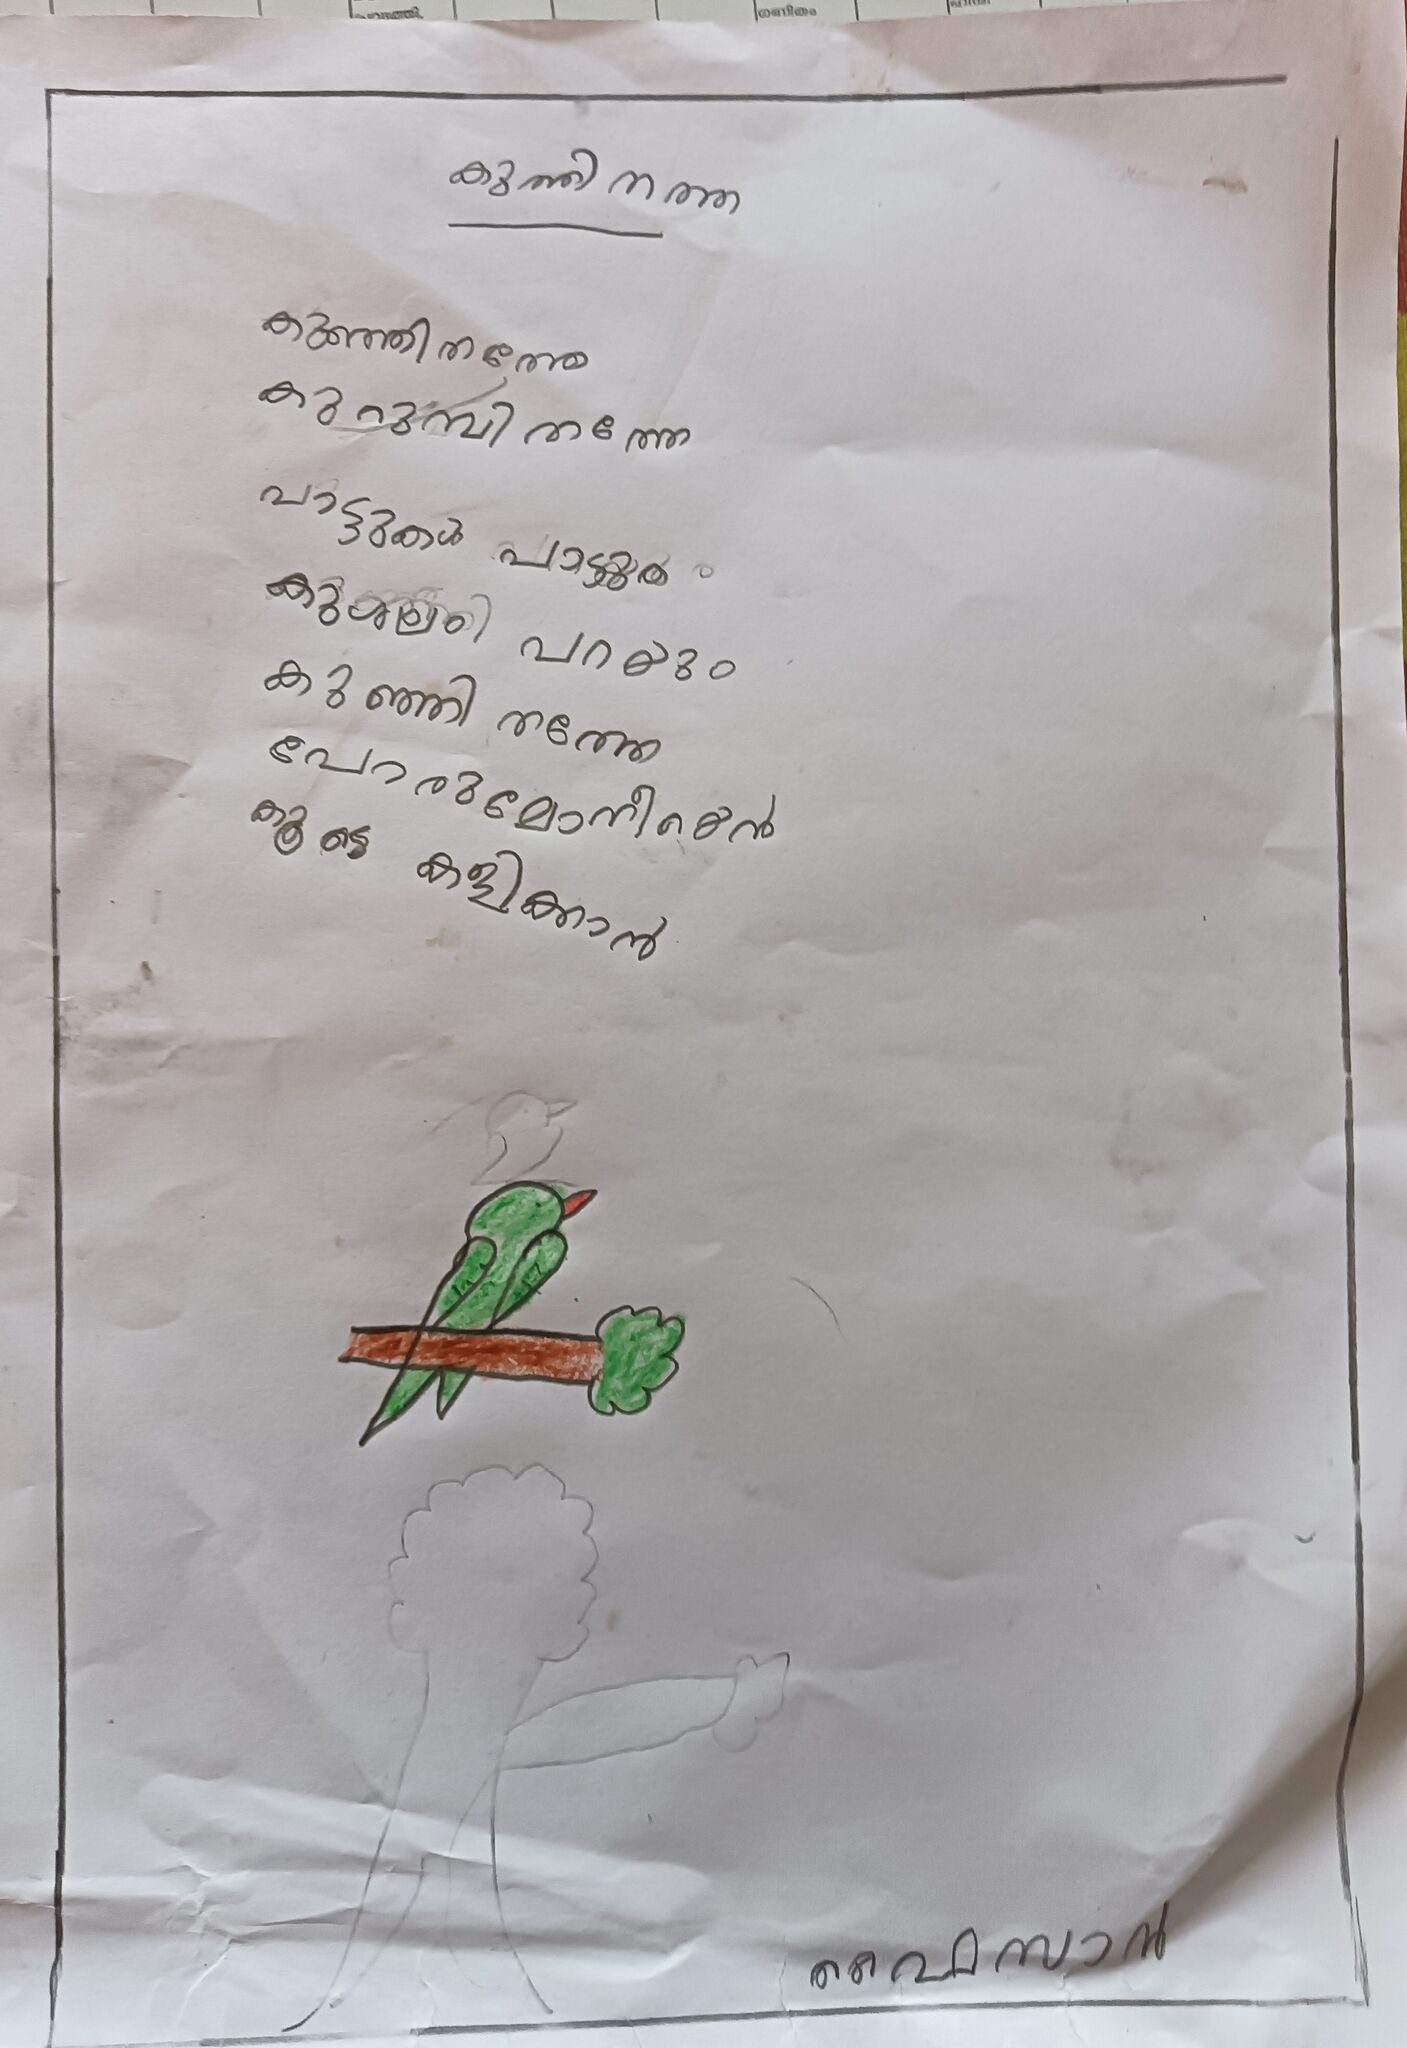 കുത്തി നത്ത
കുഞ്ഞിതത്തേ
കുറുമ്പി തത്തേ
പാട്ടുകൾ പാടും
പറയും
കുഞ്ഞി തത്തേ
പോരുമോനീയെൻ
കൂടെ കളിക്കാൻ
ഫൈസാൻ